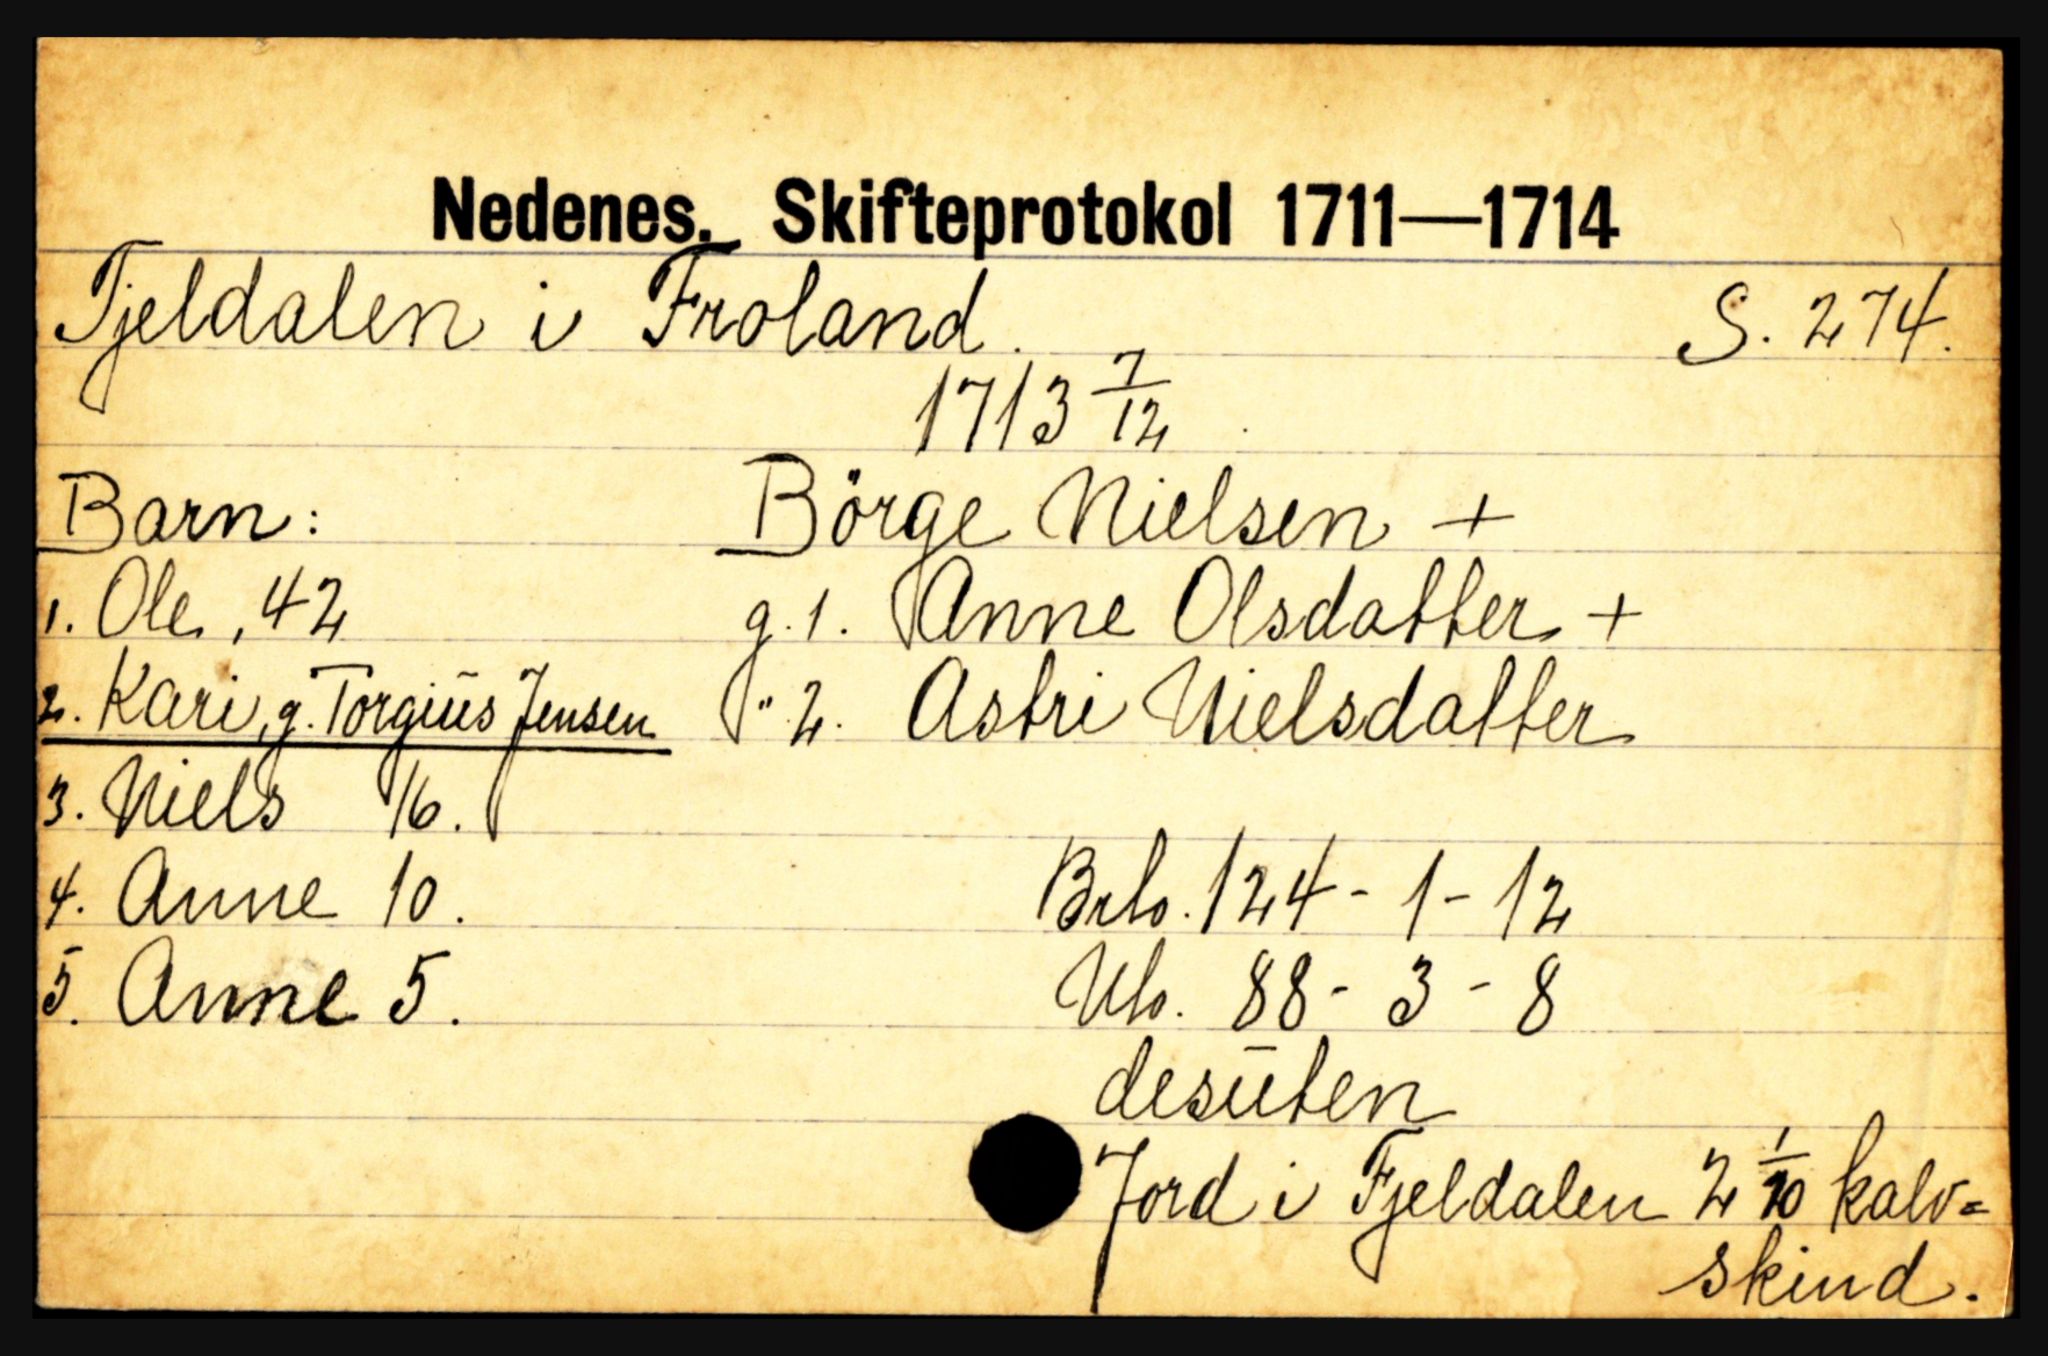 Nedenes. Skifteprotokol 1711—1714
Fjeldalen i Froland. S. 274.
1713 7/12
Barn: Börge Nielsen +
1. Ole, 42 g. 1. Anne Olsdatter +
2. Kari, g. Torgiūs Jensen " 2. Astri Nielsdatter
3. Niels 16.
4. Anne 10. Brto. 124 - 1 - 12
5. Anne 5. Nto. 88 - 3 - 8
desūten
Jord i Fjeldalen 2 1/10 kalv=
skind.